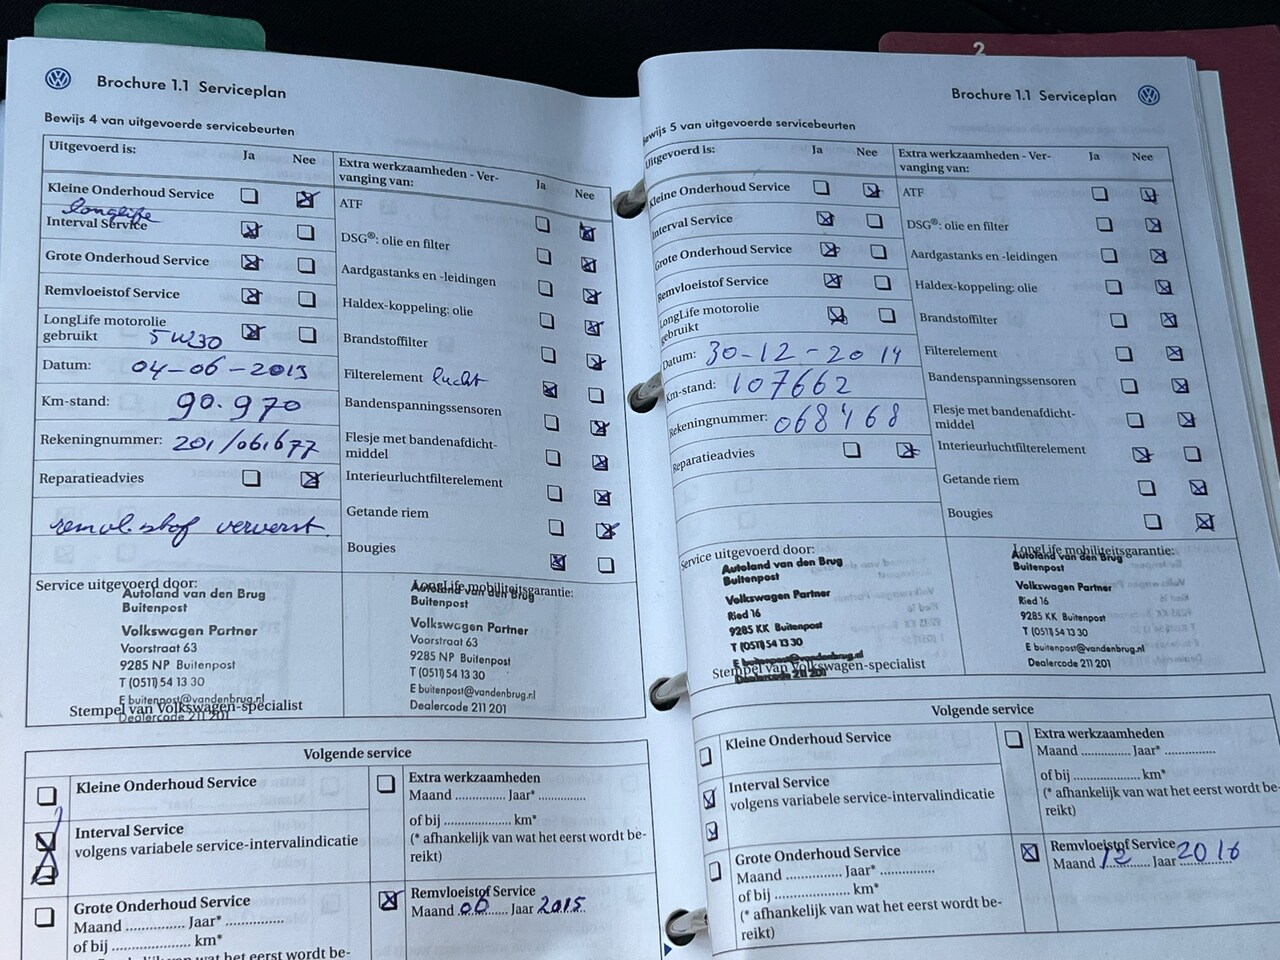 2
Brochure 1.1 Serviceplan
Bewijs 4 van uitgevoerde servicebeurten
Uitgevoerd is: Ja Nee
Kleine Onderhoud Service
longlife
Interval Service
Grote Onderhoud Service
Remvloeistof Service
LongLife motorolie
gebruikt 5W30
Datum: 04-06-2013
Km-stand: 90.970
Rekeningnummer: 201/061677
Reparatieadvies
remvl.stof ververst.
Extra werkzaamheden - Ver-
vanging van: Ja Nee
ATF
DSG®: olie en filter
Aardgastanks en -leidingen
Haldex-koppeling: olie
Brandstoffilter
Filterelement lucht
Bandenspanningssensoren
Flesje met bandenafdicht-
middel
Interieurluchtfilterelement
Getande riem
Bougies
Service uitgevoerd door:
Autoland van den Brug
Buitenpost
Volkswagen Partner
Voorstraat 63
9285 NP Buitenpost
T (0511) 54 13 30
E buitenpost@vandenbrug.nl
Stempel van Volkswagen-specialist
Dealercode 211 201
LongLife mobiliteitsgarantie:
Autoland van den Brug
Buitenpost
Volkswagen Partner
Voorstraat 63
9285 NP Buitenpost
T (0511) 54 13 30
E buitenpost@vandenbrug.nl
Dealercode 211 201
Volgende service
Kleine Onderhoud Service
Interval Service
volgens variabele service-intervalindicatie
Grote Onderhoud Service
Maand ............ Jaar* ...............
of bij ..................... km*
(* afhankelijk van wat het eerst wordt be-
Extra werkzaamheden
Maand ............ Jaar* .............
of bij ..................... km*
(* afhankelijk van wat het eerst wordt be-
reikt)
Remvloeistof Service
Maand 06 Jaar 2015
Brochure 1.1 Serviceplan
Bewijs 5 van uitgevoerde servicebeurten
Uitgevoerd is: Ja Nee
Kleine Onderhoud Service
Interval Service
Grote Onderhoud Service
Remvloeistof Service
LongLife motorolie
gebruikt
Datum: 30-12-2014
Km-stand: 107662
Rekeningnummer: 068468
Reparatieadvies
Extra werkzaamheden - Ver-
vanging van: Ja Nee
ATF
DSG®: olie en filter
Aardgastanks en -leidingen
Haldex-koppeling: olie
Brandstoffilter
Filterelement
Bandenspanningssensoren
Flesje met bandenafdicht-
middel
Interieurluchtfilterelement
Getande riem
Bougies
Service uitgevoerd door:
Autoland van den Brug
Buitenpost
Volkswagen Partner
Ried 16
9285 KK Buitenpost
T (0511) 54 13 30
E buitenpost@vandenbrug.nl
Stempel van Volkswagen-specialist
Dealercode 211 201
LongLife mobiliteitsgarantie:
Autoland van den Brug
Buitenpost
Volkswagen Partner
Ried 16
9285 KK Buitenpost
T (0511) 54 13 30
E buitenpost@vandenbrug.nl
Dealercode 211 201
Volgende service
Kleine Onderhoud Service
Interval Service
volgens variabele service-intervalindicatie
Grote Onderhoud Service
Maand ............ Jaar* ..............
of bij ..................... km*
(* afhankelijk van wat het eerst wordt be-
reikt)
Extra werkzaamheden
Maand ............ Jaar* .............
of bij ..................... km*
(* afhankelijk van wat het eerst wordt be-
reikt)
Remvloeistof Service
Maand 12 Jaar 2016